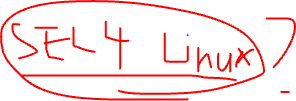 SEL4 Linux?